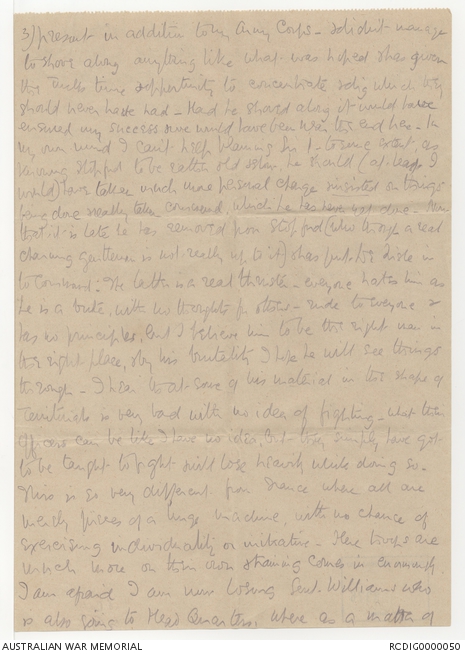 3) present in addition to my Army Corps - & didn't manage
to shove along anything like what was hoped & has given
the Turks time & opportunity to concentrate & dig which they
should never have had - Had he shoved along it would have
ensured my success & we would have been near the end here - In
my own mind I can't help blaming Sir I - to some extent, as
knowing Stopford to be rather old & slow he should (at least I
would) have taken much more personal charge & insisted on things
being done & really taken command, which he has never yet done - Now
that it is late he has removed poor Stopford (who though a real
charming gentleman is not really up to it) & has put De Lisle in
to command - The latter is a real thruster - everyone hates him as
he is a brute, with no thoughts for others - rude to everyone &
has no principles, but I believe him to be the right man in
the right place, & by his brutality I hope he will see things
through - I hear that some of his material in the shape of
Territorials is very bad with no idea of fighting - what their
officers can be like I have no idea, but they simply have got
to be taught to fight & will lose heavily while doing so -
This is so very different from France where all are
merely pieces of a huge machine, with no chance of
exercising individuality or initiative - Here troops are
much more on their own & training comes in enormously
I am afraid I am now losing Genl. Williams who
is also going to Head Quarters, where as a matter of
AUSTRALIAN WAR MEMORIAL
RCDIG0000050